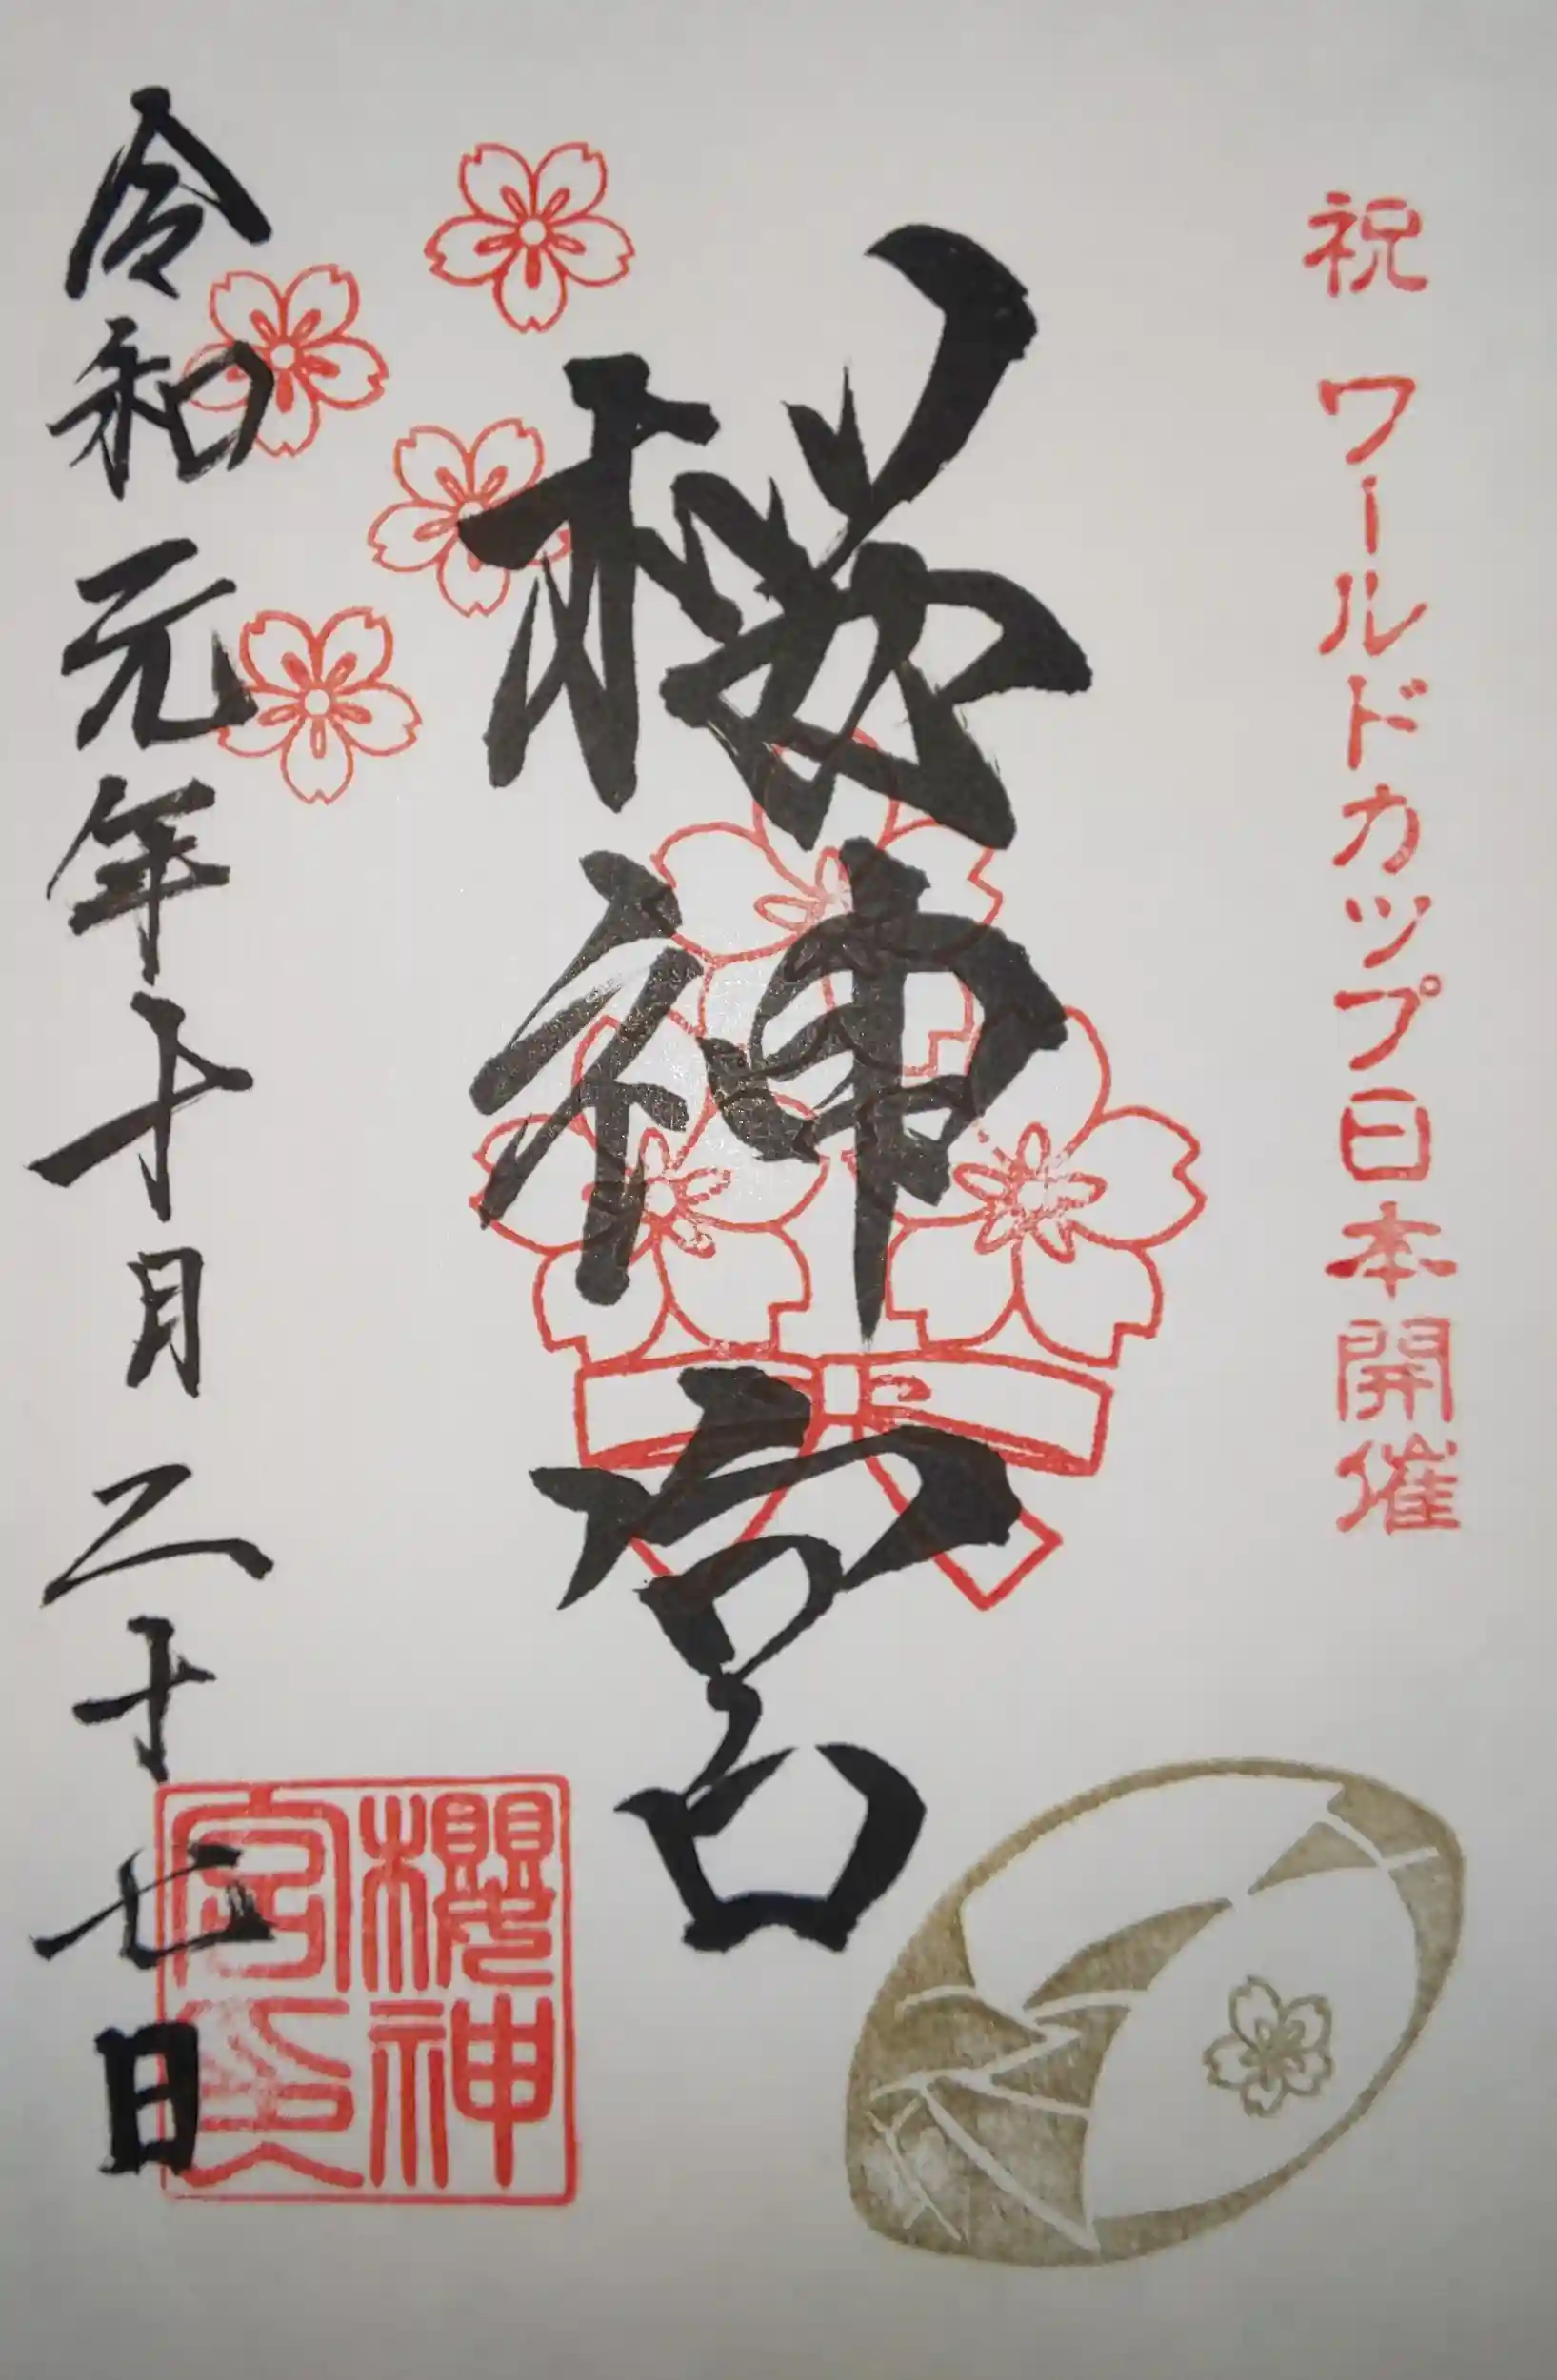 祝 ワールドカップ日本開催
桜神宮
令和元年十月二十七日
櫻神
宮印